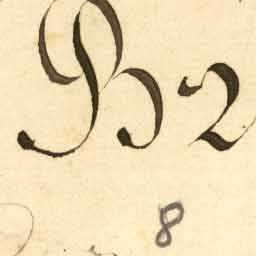 B2
8